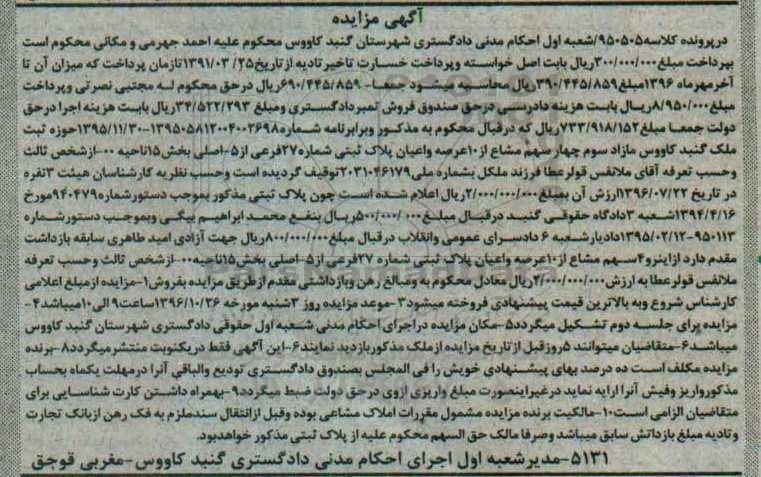 آگهی مزایده
درپرونده کلاسه۹۵۰۵۰۵/شعبه اول احکام مدنی دادگستری شهرستان گنبد کاووس محکوم علیه احمد جهرمی و مکانی محکوم است
بپرداخت مبلغ۳۰۰/۰۰۰/۰۰۰ریال بابت اصل خواسته وپرداخت خسارت تاخیر تادیه از تاریخ۱۳۹۱/۰۳/۲۵تازمان پرداخت که میزان آن تا
آخرمهرماه ۱۳۹۶مبلغ۳۹۰/۴۴۵/۸۵۹ریال محاسبه میشود جمعا- ۶۹۰/۴۴۵/۸۵۹ریال درحق محکوم لـه مجتبی نصرتی وپرداخت
مبلغ۸/۹۵۰/۰۰۰ریـال بابـت هزینه دادرسـی درحق صندوق فروش تمبردادگستـری ومبلغ ۳۴/۵۲۲/۲۹۳ریال بابت هزینه اجرا درحق
دولت جمعـا مبلغ۷۳۳/۹۱۸/۱۵۲ریال که درقبال محکوم به مذکـور وبرابرنامه شمـاره۱۳۹۵۰۵۸۱۲۰۰۴۰۰۲۶۹۸-۱۳۹۵/۱۱/۳۰حوزه ثبت
ملک گنبد کاووس مازاد سوم چهار سهم مشاع از۱۰عرصه واعیان پلاک ثبتی شماره۲۷فرعی از۵-اصلی بخش۱۵ناحیه ۰۰-ازشخص ثالث
وحسب تعرفه آقای ملانفس قولرعطا فرزند ملکل بشماره ملی۲۰۳۱۰۴۶۱۷۹توقیف گردیده است وحسب نظریه کارشناسان هیئت ۳نفره
در تاریخ ۱۳۹۶/۰۷/۲۲ارزش آن بمبلغ۲/۰۰۰/۰۰۰/۰۰۰ریال اعلام شـده اسـت چون پلاک ثبتی مذکور بموجب دستورشماره۹۴۰۴۷۹مورخ
۱۳۹۴/۴/۱۶شعبـه ۳دادگاه حقوقـی گنبـد درقبـال مبلـغ۵۰۰/۰۰۰/۰۰۰ریـال بنفـع محمـد ابراهیـم بیگـی وبموجـب دستورشماره
۹۵۰۱۱۳-۱۳۹۵/۰۲/۱۲دادیار شعبـه ۶ دادسـرای عمومی وانقلاب درقبال مبلغ۸۰۰/۰۰۰/۰۰۰ریال جهت آزادی امید طاهری سابقه بازداشت
مقدم دارد ازاینرو۴سـهم مشاع از۱۰عرصه واعیان پلاک ثبتی شماره ۲۷فرعی از۵-اصلی بخش۱۵ناحیه۰۰-ازشخص ثالث وحسب تعرفه
ملانفس قولرعطا به ارزش۲/۰۰۰/۰۰۰/۰۰۰ریال معادل محکوم به ومبالغ رهن وبازداشتی مقدم ازطریق مزایده بفروش۱-مزایده ازمبلغ اعلامی
کارشناس شروع وبه بالاترین قیمت پیشنهادی فروخته میشود۳-موعد مزایده روز ۳شنبه مورخه ۱۳۹۶/۱۰/۲۶ساعت۹ الی۱۰میباشد۴-
مزایده برای جلسه دوم تشـکیل میگردد۵-مکان مزایده دراجرای احکام مدنی شـعبه اول حقوقی دادگستری شهرستان گنبد کاووس
میباشد۶-متقاضیان میتوانند ۵روزقبل ازتاریخ مزایده ازملک مذکوربازدید نمایند۶-این آگهی فقط دریکنوبت منتشرمیگردد۸-برنده
مزایده مکلف است ده درصد بهای پیشـنهادی خویش را فی المجلس بصندوق دادگستـری تودیع والباقی آنرا درمهلت یکماه بحساب
مذکورواریز وفیش آنرا ارایه نماید درغیراینصورت مبلغ واریزی ازوی درحق دولت ضبط میگردد۹-بهمراه داشتـن کارت شناسـایی برای
متقاضیان الزامی است۱۰-مالکیت برنده مزایده مشمول مقررات املاک مشاعی بوده وقبل ازانتقال سندملزم به فک رهن ازبانک تجارت
وتادیه مبلغ بازداتش سابق میباشد وصرفا مالک حق السهم محکوم علیه از پلاک ثبتی مذکور خواهدبود.
۵۱۳۱-مدیرشعبه اول اجرای احکام مدنی دادگستری گنبد کاووس-مغربی قوجق